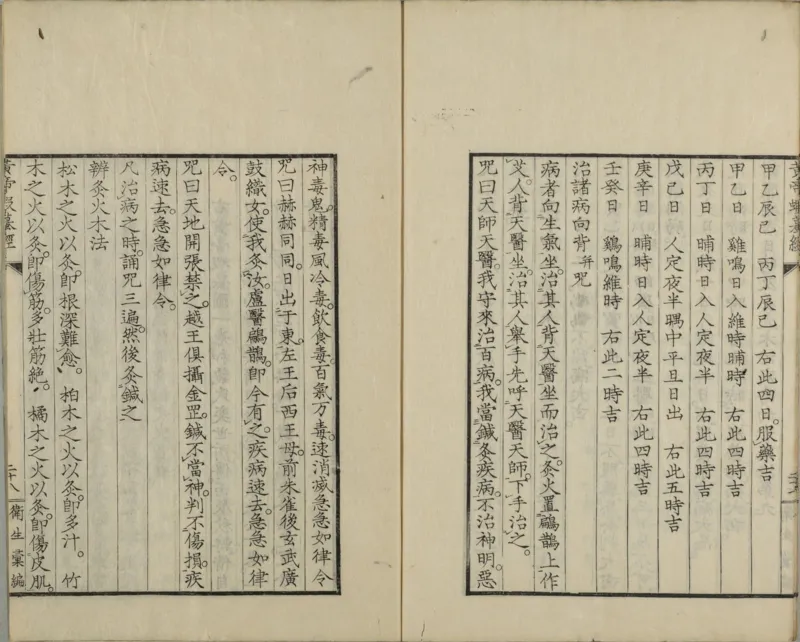 甲乙辰巳　丙丁辰巳　右此四日。服藥吉
甲乙日　雞鳴日入維時晡時　右此四時吉
丙丁日　晡時日入人定夜半　右此四時吉
戊己日　人定夜半隅中平旦日出　右此五時吉
庚辛日　晡時日入人定夜半　右此四時吉
壬癸日　鷄鳴維時　右此二時吉
治諸病向背并咒
病者向生氣坐。治其人背天醫坐而治之。灸火置鷗鵲上作
艾。人背天醫坐。治其人舉手先呼天醫天師。下手治之。
咒曰天師天醫。我守來治百病。我當鍼灸疾病。不治神明。惡
神毒鬼。精毒風冷毒。飲食毒百氣万毒。速消滅急急如律令
咒曰赫赫同同。日出于東。左王后西王母。前朱雀後玄武廣
鼓織女。使我灸汝。盧醫鷗鵲。卽今有之疾病速去。急急如律
令。
咒曰天地開張禁之。越王俱攝金罡。鍼不當神判不傷損。疾
病速去。急急如律令。
凡治病之時。誦咒三遍。然後灸鍼之
辨灸火木法
松木之火以灸。卽根深難愈。　柏木之火以灸。卽多汁。　竹
木之火以灸。卽傷筋。多壯筋絶。　橘木之火以灸。卽傷皮肌。
黃帝蝦蟇經
二十八
衞生彙編